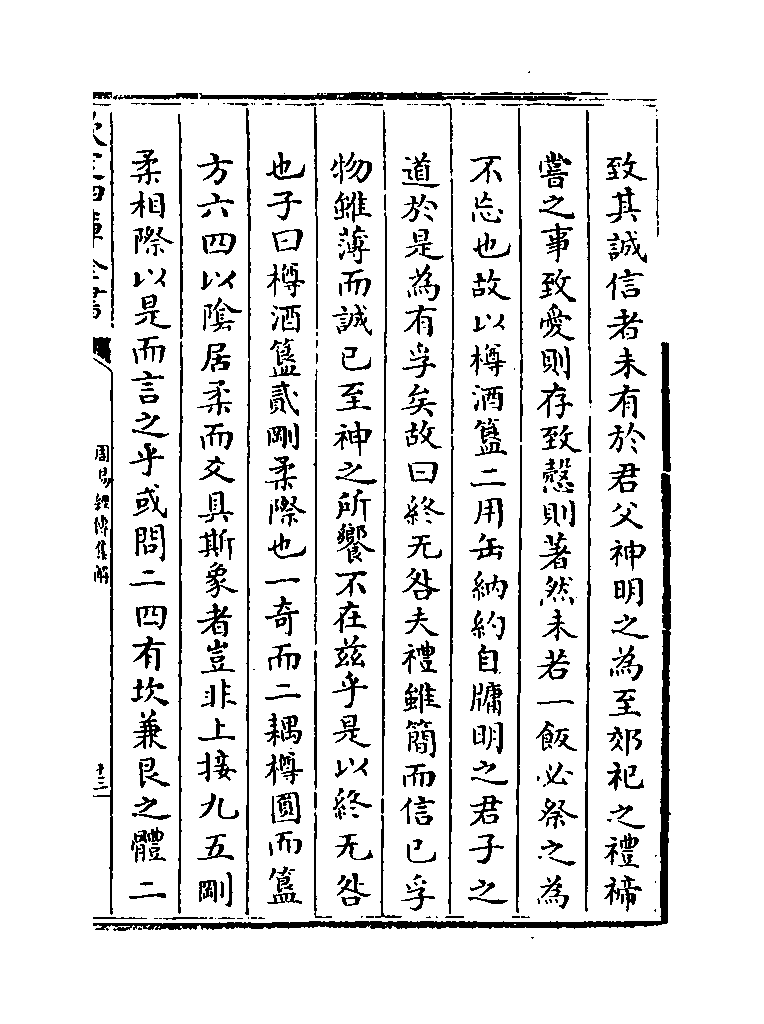 致其誠信者未有於君父神明之為至郊祀之禮禘
嘗之事致愛則存致慤則著然未若一飯必祭之為
不忘也故以樽酒簋二用缶納約自牖明之君子之
道於是為有孚矣故曰終无咎夫禮雖簡而信已孚
物雖薄而誠已至神之所饗不在兹乎是以終无咎
也子曰樽酒簋貳剛柔際也一奇而二耦樽圓而簋
方六四以陰居柔而交具斯象者豈非上接九五剛
柔相際以是而言之乎或問二四有坎兼艮之體二
欽定四庫全書
周易經傳集解
十三